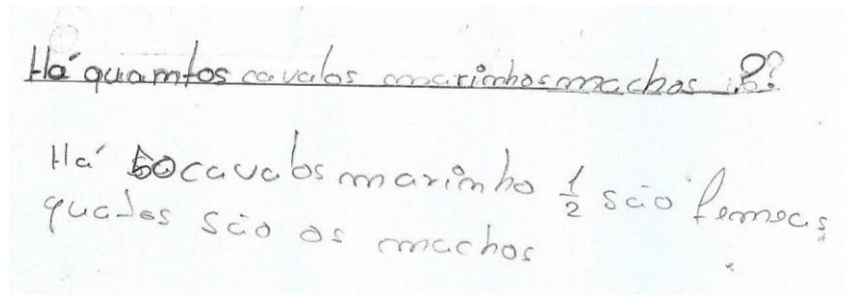 Há quamtos cavalos marinhos machos ??
Há 50 cavalos marinho 1/2 são femeas
quales são os machos